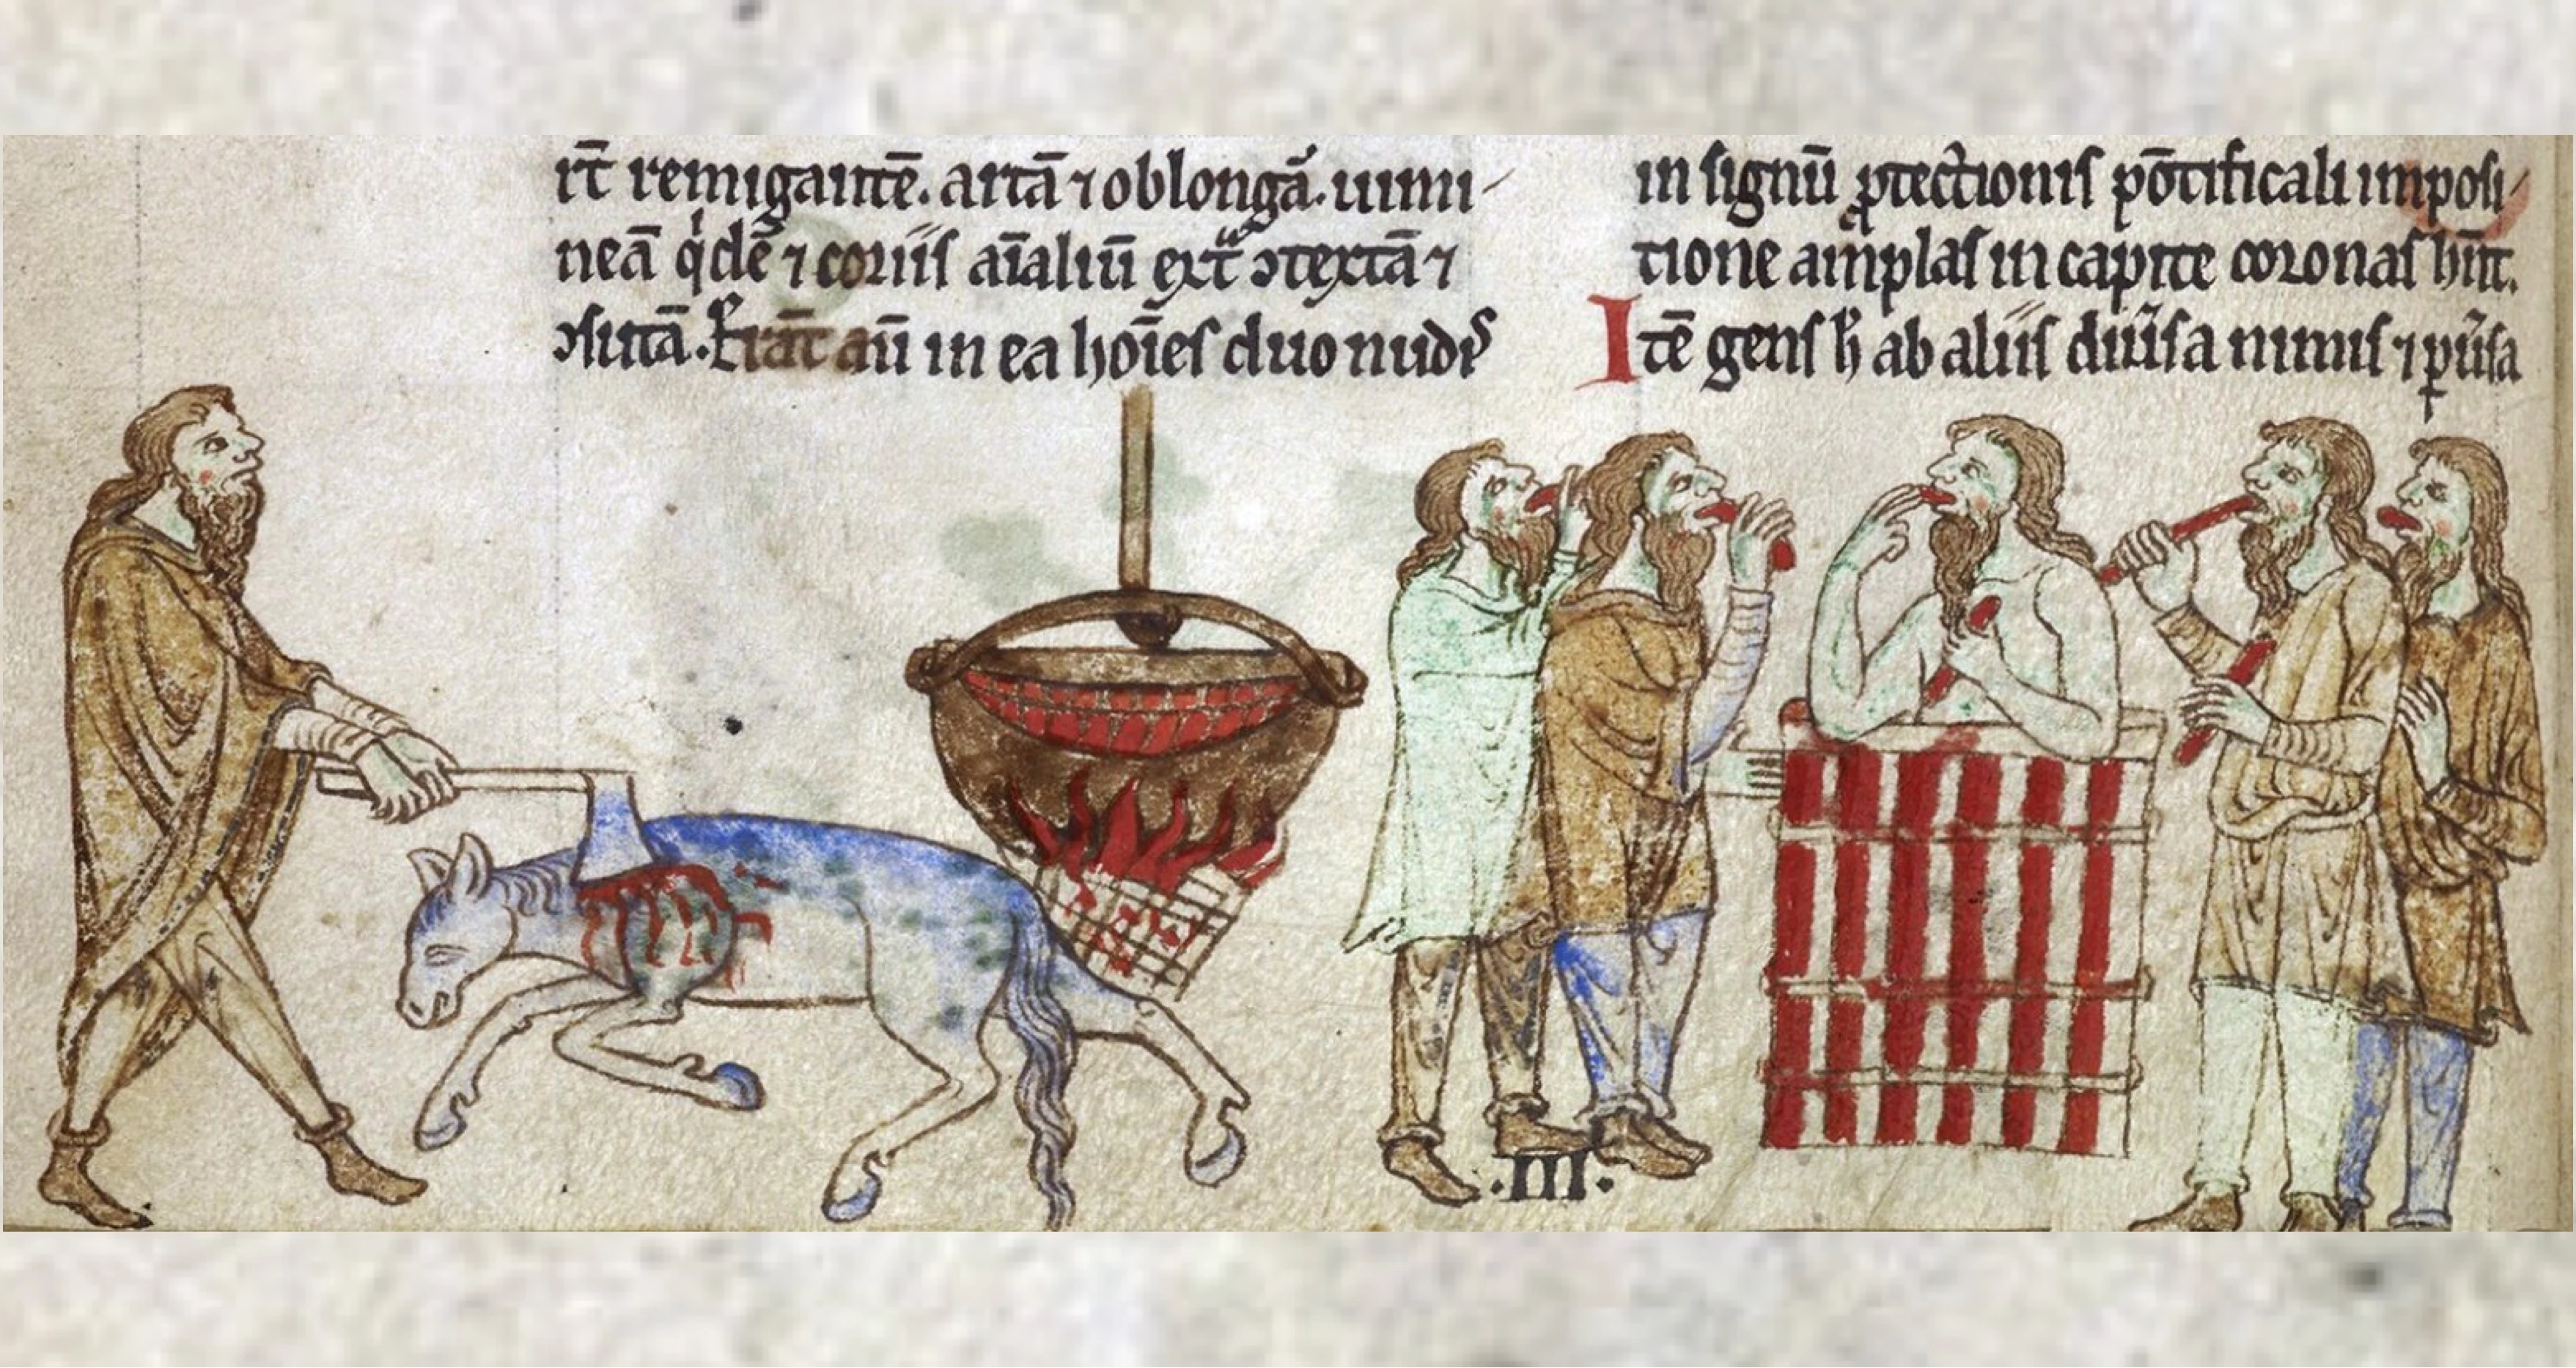 rt̄ remigantē. artā ⁊ oblongā. uimi-
neā q'dē ⁊ coriis aīaliū ext̄ ɔtextā ⁊
ɔsutā. Erāt aū in ea hoīes duo nudis
in signū ꝓtectionis pōtificali imposi-
tione amplas in capite coronas hn̄t.
Itē gens h̄ ab aliis diu̾sa nimis ⁊ ꝑu̾sa
.III.